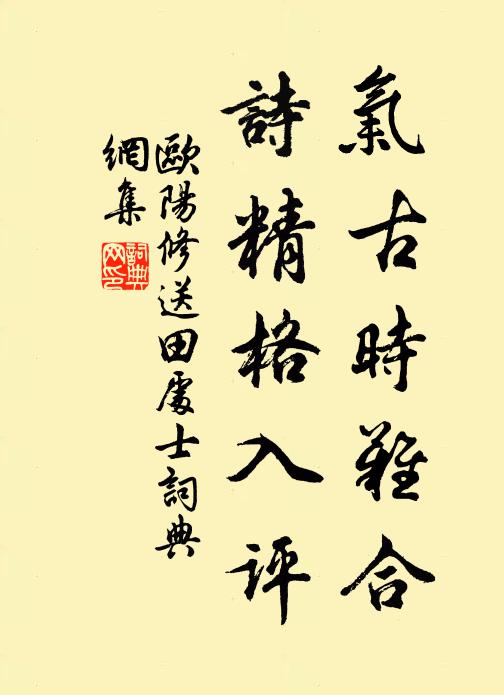 氣古時難合
詩精格入評
歐陽修送田處士詞典
網集
詞典
网印